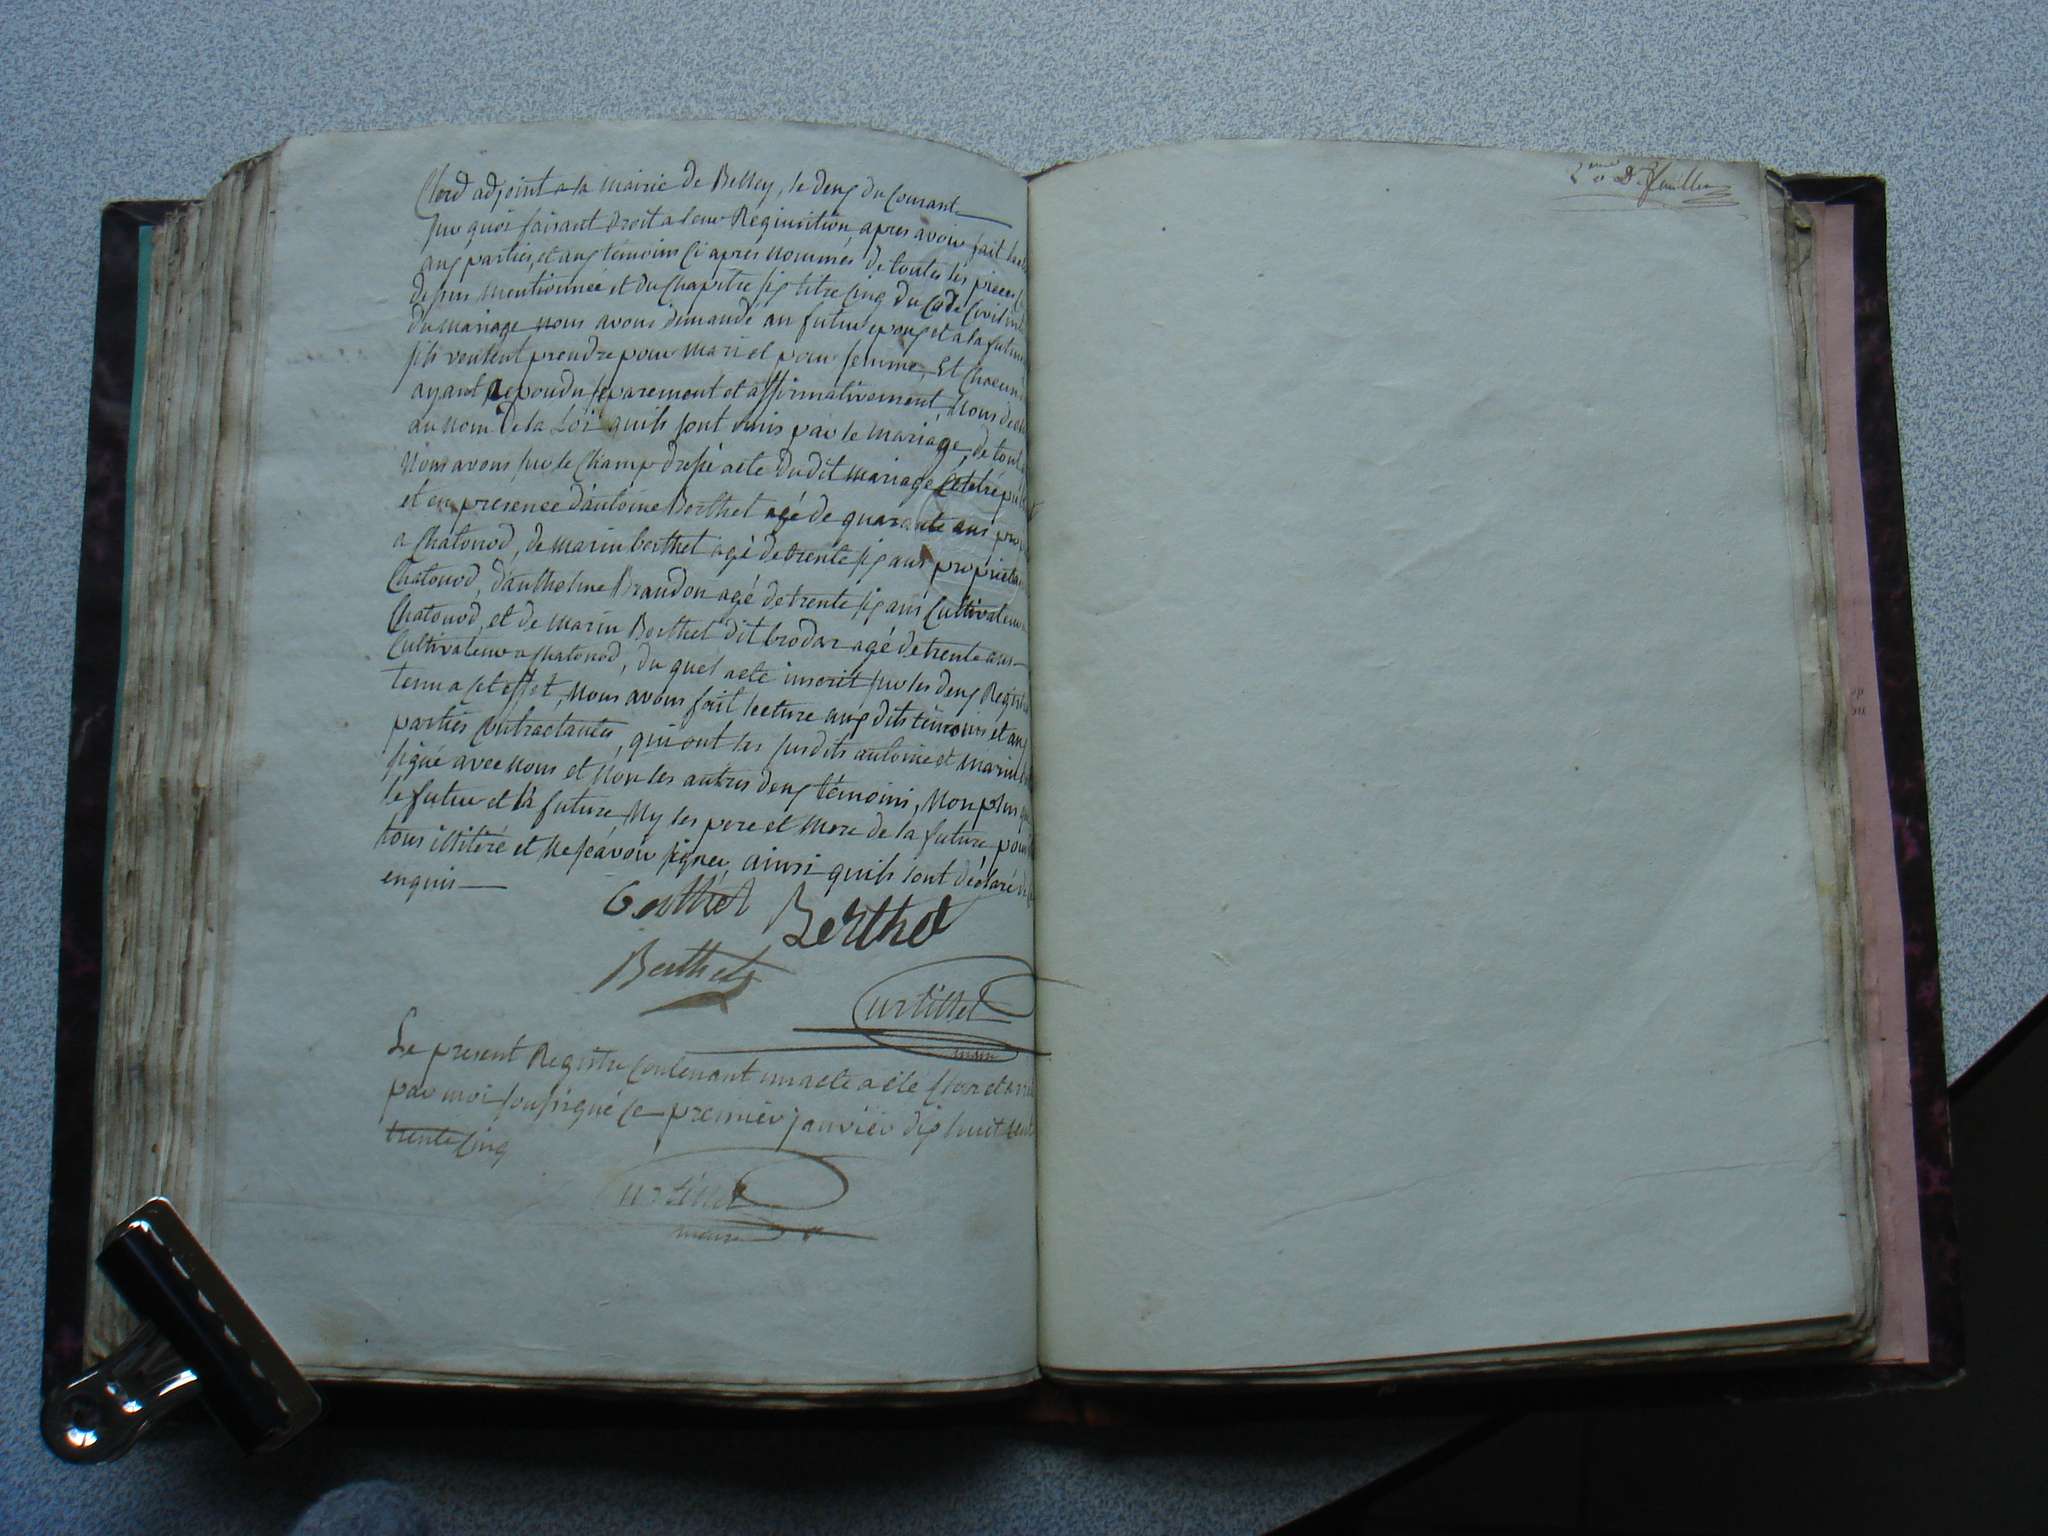 adjoint a la mairie de Belley, le deux du Courant
Sur quoi faisant droit a leur Requisition, apres avoir fait
aux parties, et aux témoins Ci apres nommés, de toutes les pieces
dessus mentionnée et du Chapitre six titre Cinq du Code Civil
du mariage nous avons demandé au futur epoux et a la future
s'ils veulent prendre pour mari et pour femme, Et Chacun
ayant repondu separement et affirmativement, Nous
au nom de la Loi quils sont unis par le mariage, de tout
Nous avons sur le Champ dressé acte dudit mariage
et en presence d'antoine Berthet agé de quarante ans
a Chatonod, de marin berthet agé de trente six ans
Chatonod, d'anthelme Brandon agé de trente six ans Cultivateur
Chatonod, et de marin Berthet dit brodar agé de trente ans
Cultivateur a Chatonod, du quel acte inscrit sur les deux
tenu a cet effet, Nous avons fait lecture aux dits témoins et aux
parties Contractantes, qui ont les susdits antoine et marin
signé avec nous et Non les autres deux témoins, Non plus que
le futur et la future Ny les pere et mere de la future pour
tous illitéré et ne scavoir signer, ainsi quils l'ont déclaré de
enquis
Berthet Berthet
Berthet
Curtillet
maire
Le present Registre Contenant un acte a été Clos et
par moi soussigné le premier janvier dix huit cent
trente Cinq
Curtillet
maire
2eme